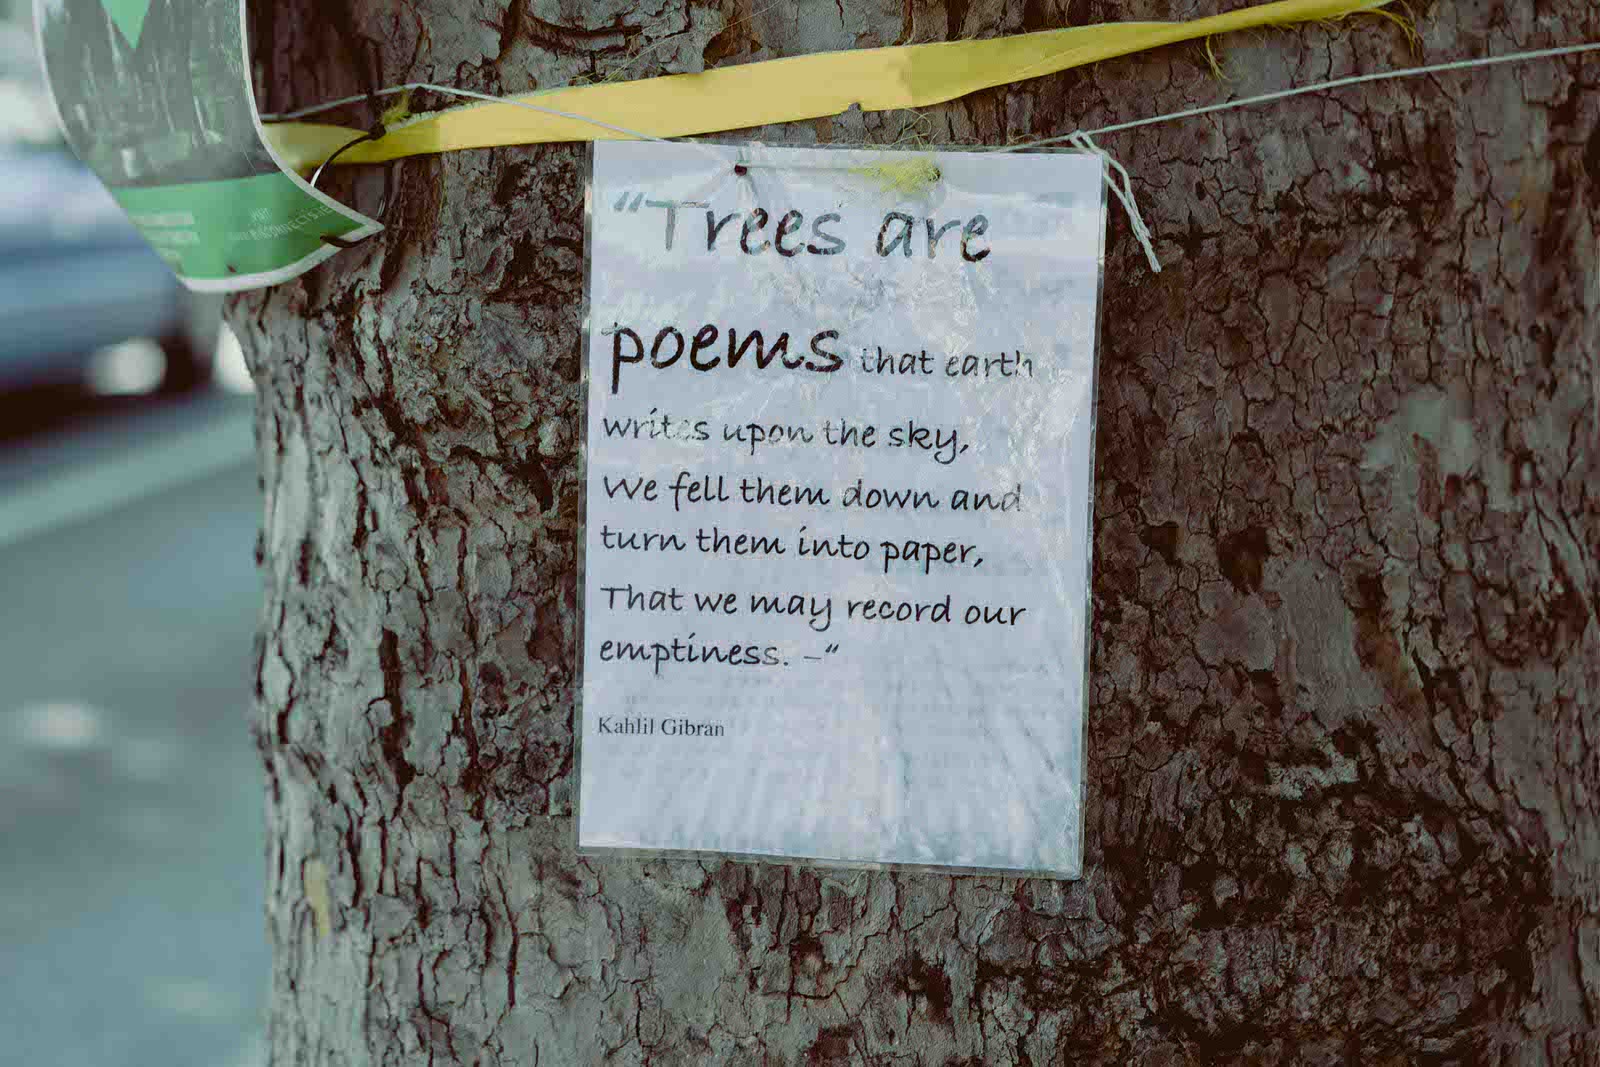 “Trees are
poems that earth
writes upon the sky,
We fell them down and
turn them into paper,
That we may record our
emptiness. –“
Kahlil Gibran